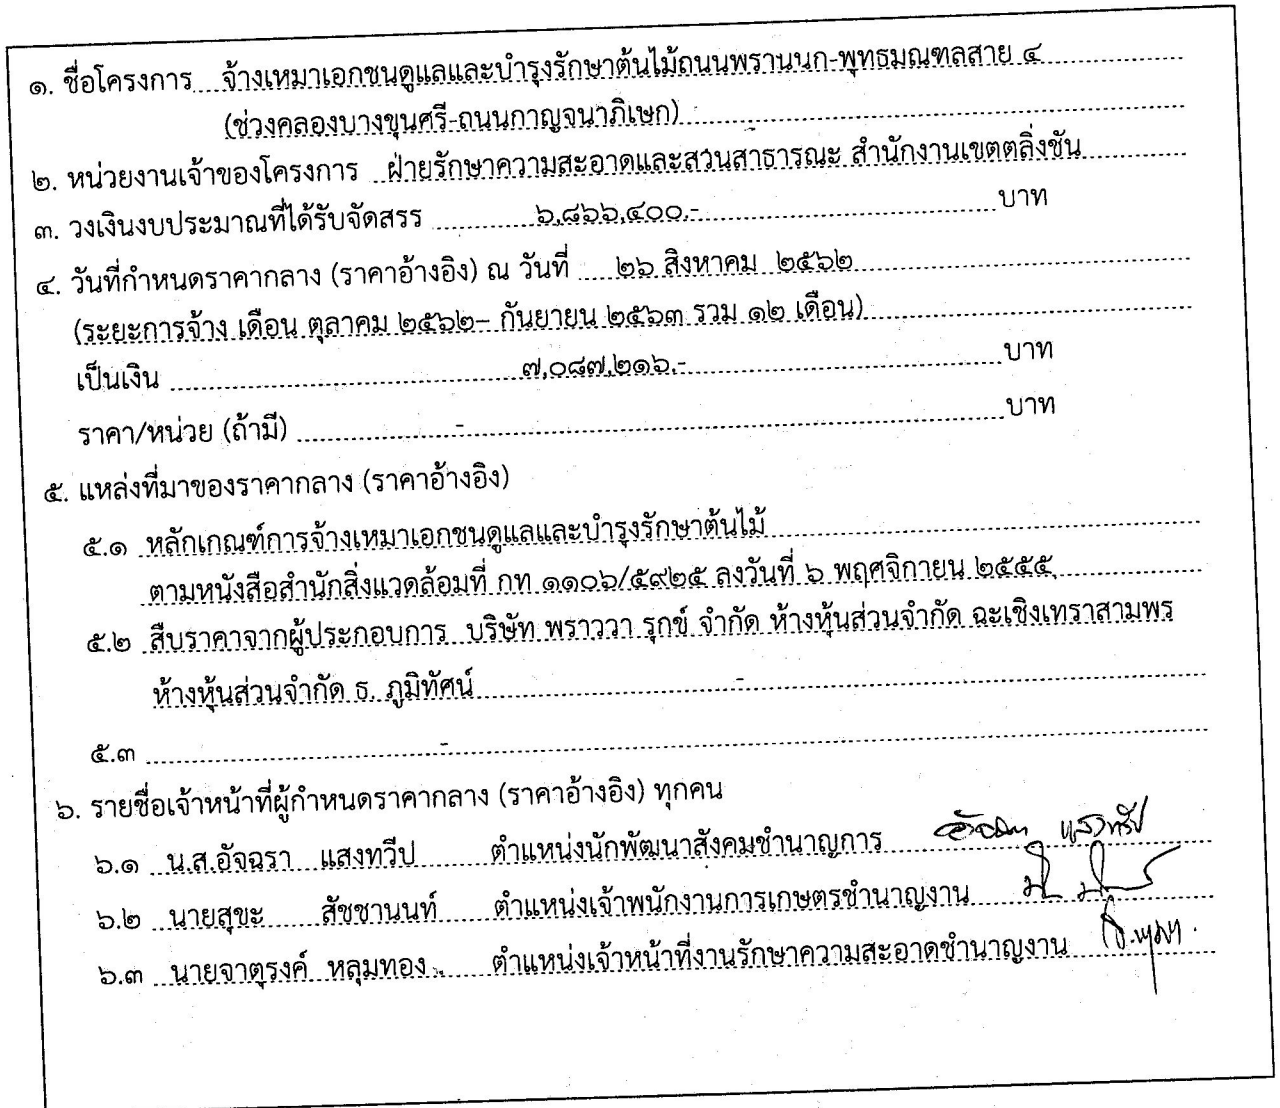 ๑. ชื่อโครงการ จ้างเหมาเอกชนดูแลและบำรุงรักษาต้นไม้ถนนพรานนก-พุทธมณฑลสาย ๔
(ช่วงคลองบางขุนศรี-ถนนกาญจนาภิเษก) -
๒. หน่วยงานเจ้าของโครงการ ฝ่ายรักษาความสะอาดและสวนสาธารณะ สำนักงานเขตตลิ่งชัน
๓. วงเงินงบประมาณที่ได้รับจัดสรร ๖,๘๖๖,๔๐๐.- บาท
๔. วันที่กำหนดราคากลาง (ราคาอ้างอิง) ณ วันที่ ๒๖ สิงหาคม ๒๕๖๒
(ระยะการจ้าง เดือน ตุลาคม ๒๕๖๒– กันยายน ๒๕๖๓ รวม ๑๒ เดือน)
เป็นเงิน ๗,๐๘๗,๒๑๖.- บาท
ราคา/หน่วย (ถ้ามี) - บาท
๕. แหล่งที่มาของราคากลาง (ราคาอ้างอิง)
๕.๑ หลักเกณฑ์การจ้างเหมาเอกชนดูแลและบำรุงรักษาต้นไม้
ตามหนังสือสำนักสิ่งแวดล้อมที่ กท ๑๑๐๖/๕๙๒๕ ลงวันที่ ๖ พฤศจิกายน ๒๕๕๕
๕.๒ สืบราคาจากผู้ประกอบการ บริษัท พราววา รุกข์ จำกัด ห้างหุ้นส่วนจำกัด ฉะเชิงเทราสามพร
ห้างหุ้นส่วนจำกัด ธ. ภูมิทัศน์ -
๕.๓ -
๖. รายชื่อเจ้าหน้าที่ผู้กำหนดราคากลาง (ราคาอ้างอิง) ทุกคน
๖.๑ น.ส.อัจฉรา แสงทวีป ตำแหน่งนักพัฒนาสังคมชำนาญการ
๖.๒ นายสุขะ สัชชานนท์ ตำแหน่งเจ้าพนักงานการเกษตรชำนาญงาน
๖.๓ นายจาตุรงค์ หลุมทอง ตำแหน่งเจ้าหน้าที่งานรักษาความสะอาดชำนาญงาน